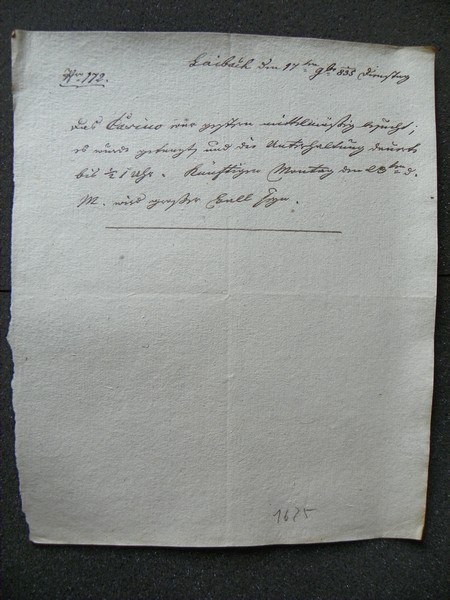 Laibach den 17ten 9br 835 Dienstag
Nro 172.
Das Casino war gestern mittelmässig besucht;
es wurde getanzt, und die Unterhaltung dauerte
bis ½ 1 Uhr. Künftigen Montag den 23ten d.
M. wird großer Ball seyn.
1675